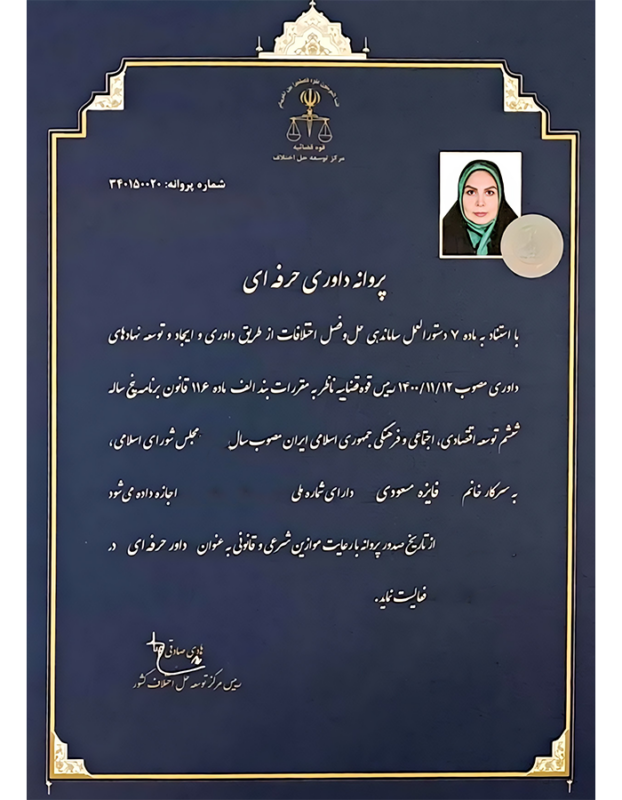 قوه قضائیه
مرکز توسعه حل اختلاف
شماره پروانه: ۳۴۰۱۵۰۰۲۰
پروانه داوری حرفه ای
با استناد به ماده ۷ دستورالعمل ساماندهی حل و فصل اختلافات از طریق داوری و ایجاد و توسعه نهادهای
داوری مصوب ۱۴۰۰/۱۱/۱۲ رییس قوه قضاییه ناظر به مقررات بند الف ماده ۱۱۶ قانون برنامه پنج ساله
ششم توسعه اقتصادی، اجتماعی و فرهنگی جمهوری اسلامی ایران مصوب سال مجلس شورای اسلامی،
به سرکار خانم فایزه مسعودی دارای شماره ملی اجازه داده می شود
از تاریخ صدور پروانه با رعایت موازین شرعی و قانونی به عنوان داور حرفه ای در
فعالیت نماید.
هادی صادقی
رییس مرکز توسعه حل اختلاف کشور